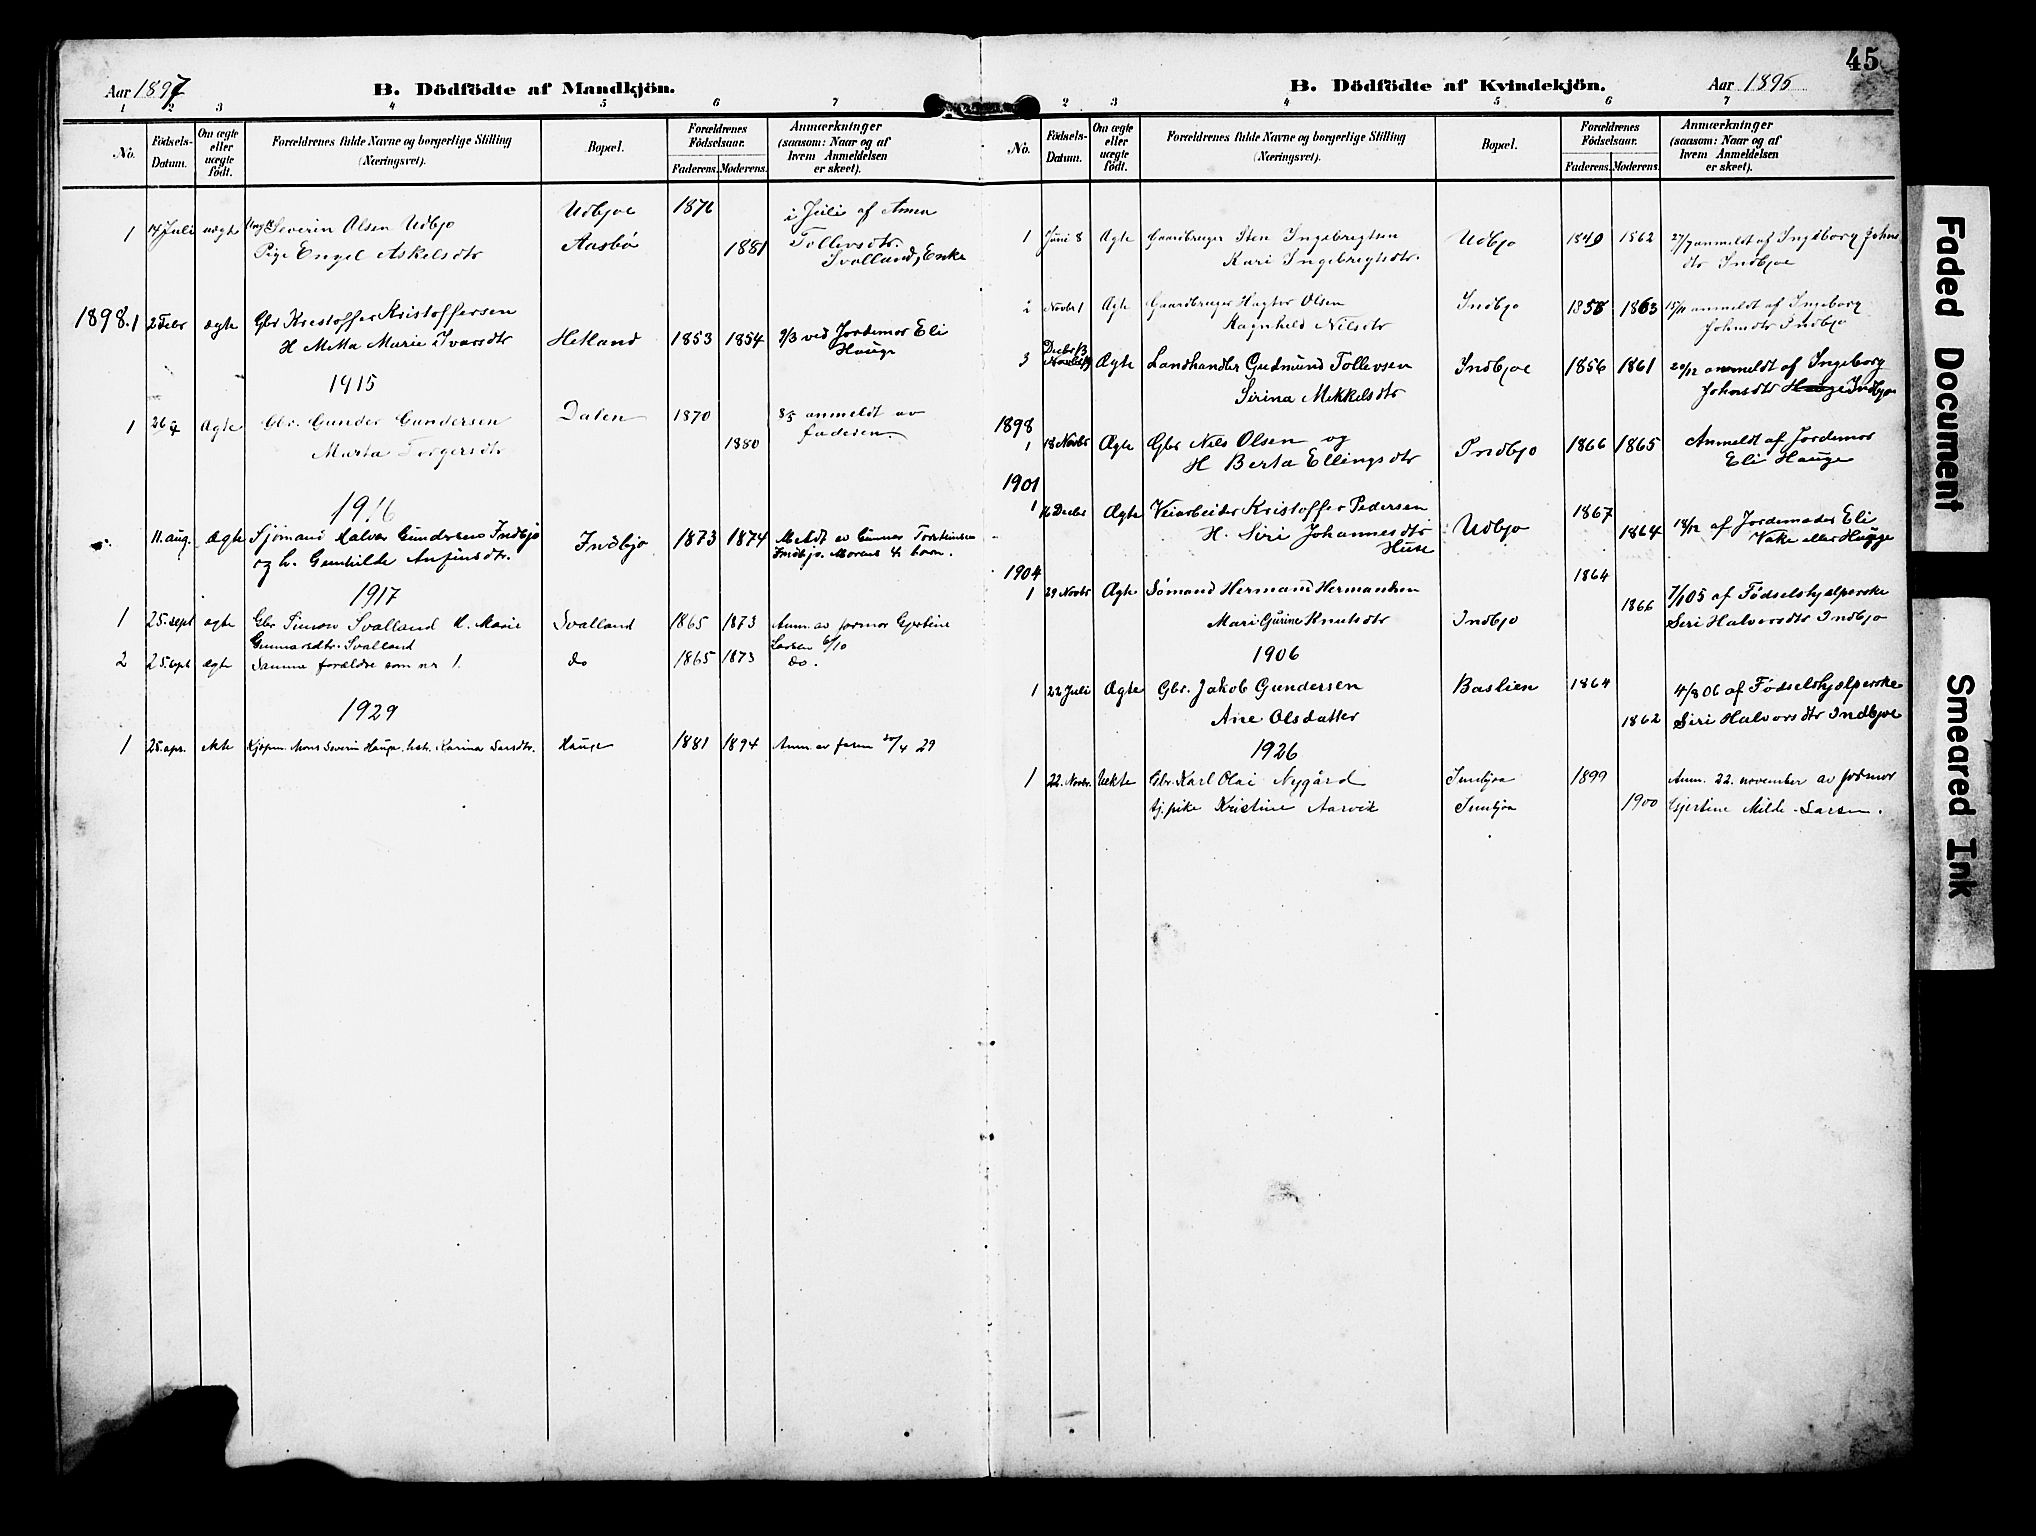 45
Aar 1897
B. Dödfödte af Mandkjön.
1 2 3 4 5 6 7
No.
Födsels-Datum.
Om ægte eller uægte födt.
Forældrenes fulde Navne og borgerlige Stilling (Næringsvei).
Bopæl.
Forældrenes Födselsaar.
Faderens. Moderens.
Anmærkninger (saasom: Naar og af hvem Anmeldelsen er skeet).
1 14 Juli uægte Severin Olsen Udbjo Udbjoe 1876 i Juli af Anna
Pige Engel Askelsdtr Aasbø 1881 Tollevsdtr.
Svolland, Enke
1898. 1 2 Febr ægte Gbr Kristoffer Kristoffersen
H Metta Marie Ivarsdtr Hetland 1853 1854 9/3 ved Jordemor Eli
Hauge
1915
1 26/4 Ægte Gbr. Gunder Gundersen Dalen 1870 8/5 anmeldt av
Marta Torgersdtr 1880 faderen.
1916
11. aug. Ægte Sjömand Halvor Gundersen Indbjo Indbjo 1873 1874 Meldt av Gunnar Torstensen
og h. Gunhilde Anfinsdtr. Indbjo. Morens 4 barn.
1917
1 25. sept ægte Gbr Simon Svalland H. Marie Svalland 1865 1873 Anm. av jormor Gjertine
Gunnarsdtr. Svalland Larsen 6/10
2 25. sept ægte Samme forældre som nr 1. do 1865 1873 do.
1929
1 25. apr. ekte Kjøpm. Mons Severin Hauge. hst. Karina Larsdtr. Hauge 1881 1894 Anm. av faren 30/4 29
B. Dödfödte af Kvindekjön.
Aar 1895
2 3 4 5 6 7
No.
Födsels-Datum.
Om ægte eller uægte födt.
Forældrenes fulde Navne og borgerlige Stilling (Næringsvei).
Bopæl.
Forældrenes Födselsaar.
Faderens. Moderens.
Anmærkninger (saasom: Naar og af hvem Anmeldelsen er skeet).
1 Juni 8 Ægte Gaardbruger Sten Ingebregtsen Udbjo 1840 1862 27/7 anmeldt af Ingeborg Johns
Kari Ingebregtsdtr. dtr Indbjoe
2 Novbr 1 Ægte Gaardbruger Hagtor Olsen Indbjo 1858 1863 15/11 anmeldt af Ingeborg
Ragnhild Nilsdtr Johnsdtr Indbjo
3 Decbr 13 Ægte Landhandler Gudmund Tollevsen Indbjoe 1856 1861 20/12 anmeldt af Ingeborg
Serina Mikkelsdtr Johnsdtr Hauge Indbjo
1898
1 18 Novbr Ægte Gbr Nils Olsen og Indbjo 1866 1865 Anmeldt af Jordemor
H Berta Ellingsdtr Eli Hauge
1901
1 16 Decbr Ægte Veiarbeider Kristoffer Pedersen Udbjo 1867 18/12 af Jordemoder Eli
H. Siri Johannesdtr 1864 Vake eller Hauge
Huse
1904
1 29 Novbr Ægte Sømand Hermand Hermandsen 1864 7/1 05 af Fødselshjælperske
Mari Gurine Knutsdtr Indbjo 1866 Siri Halvorsdtr Indbjo
1906
1 22 Juli Ægte Gbr. Jakob Gundersen Baslien 1864 4/8 06 af Fødselshjælperske
Ane Olsdatter 1862 Siri Halvorsdtr Indbjoe
1926
1 22. Novbr. Uekte Gbr. Karl Olai Nygård Innbjoa 1899 Anm. 22. november av jodmor
tj. pike Kristine Aarvik Innbjoa 1900 Gjertine Milde-Larsen.
Faded Document
Smeared Ink